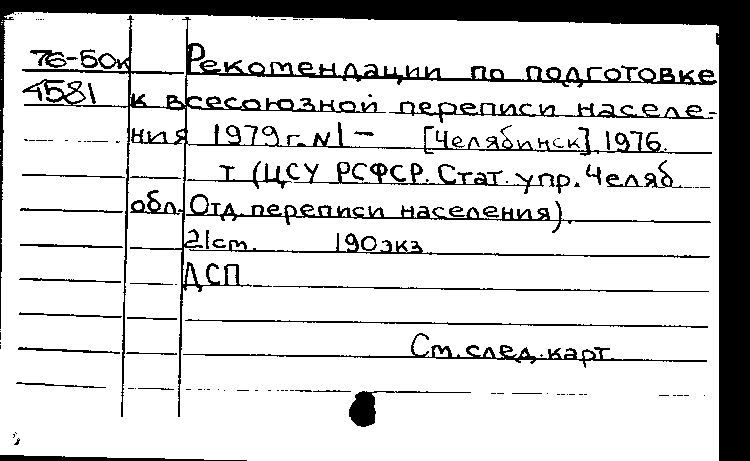 76-50к Рекомендации по подготовке
4581 к всесоюзной переписи населе-
ния 1979 г. N1 - [Челябинск]. 1976.
т (ЦСУ РСФСР. Стат. упр. Челяб.
обл. Отд. переписи населения).
21ст. 190экз.
ДСП
См. след. карт.